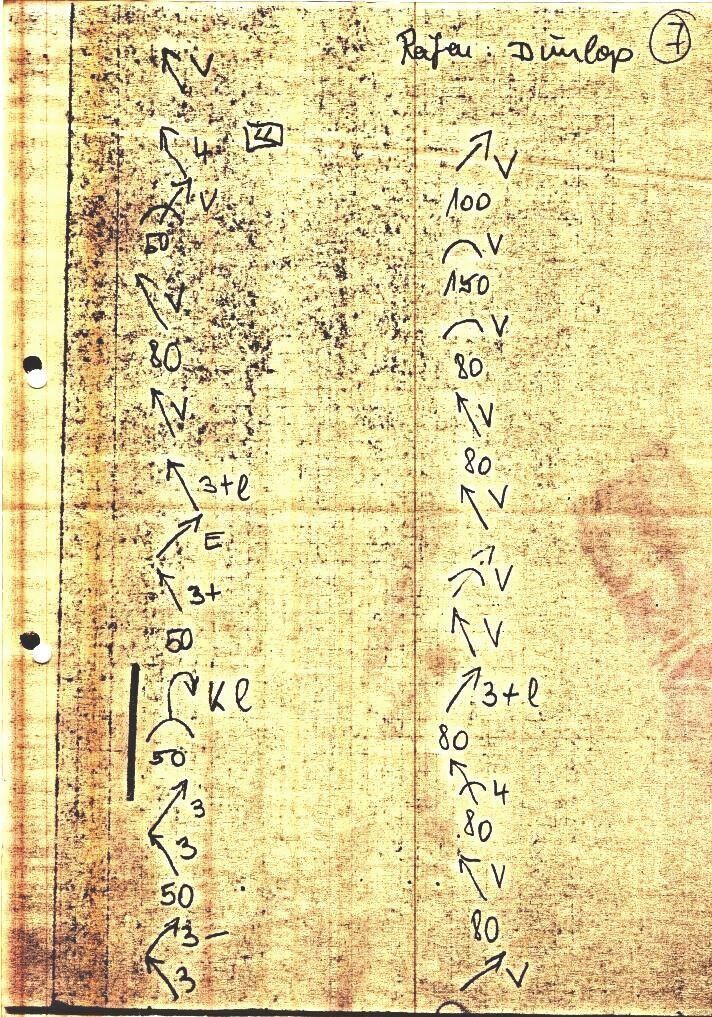 Reifen: Dunlop 7
V
4
V
50
V
80
V
3+l
E
3+
50
K l
50
3
3
50
3-
3
V
100
V
150
V
80
V
80
V
V
V
3+l
80
4
80
V
80
V